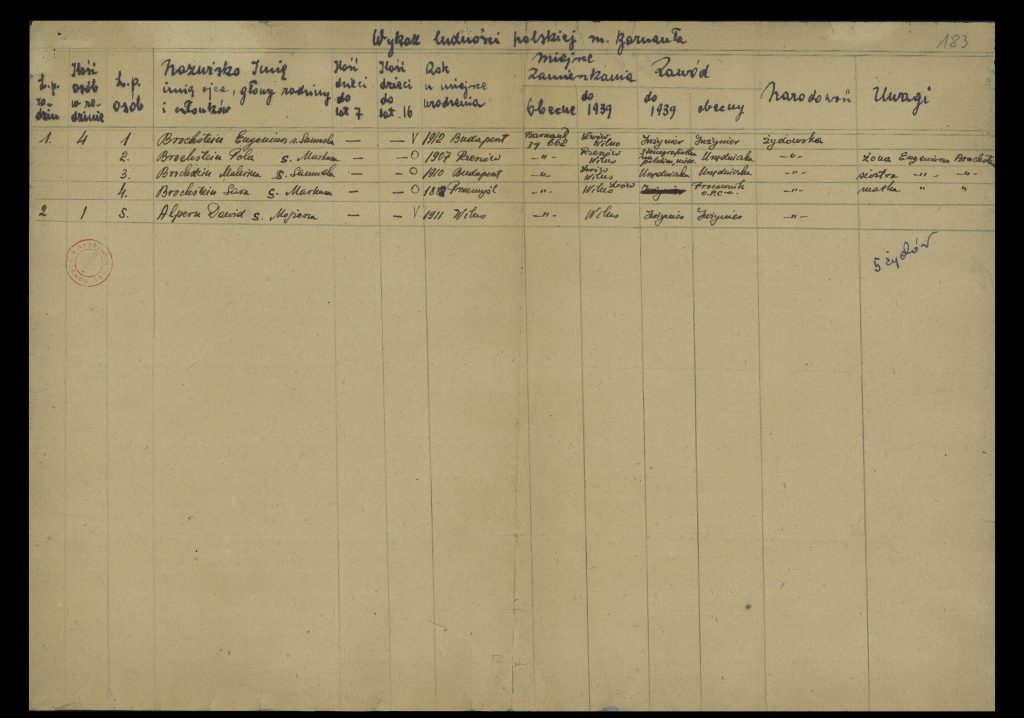 Wykaz ludności polskiej m. Barnauła
183
L.p. rodzin
Ilość osób w rodzinie
L.p. osób
Nazwisko Imię imię ojca, głowy rodziny i członków
Ilość dzieci do lat 7
Ilość dzieci do lat 16
Rok i miejsce urodzenia
Miejsce zamieszkania
Obecne
do 1939
Zawód
do 1939
obecny
Narodowość
Uwagi
1. 4 1 Brochstein Eugeniusz s. Samuela — — V 1912 Budapest Barnauł Lwów Wilno Inżynier Inżynier Żydowska
2. Brochstein Pola s. Markusa — — O 1907 Rzeszów -"- Rzeszów Wilno Urzędniczka -"- żona Eugeniusza Brochsteina
3. Brochstein s. Samuela — — O 1910 Budapest -"- Lwów Wilno Urzędniczka Urzędniczka -"- siostra -"- -"-
4. Brochstein Sara s. Markusa — — O Przemyśl -"- Wilno Lwów Pracownik -"- matka " "
2 1 5. Alpern Dawid s. Mojżesza — — V 1911 Wilno -"- Wilno Inżynier Inżynier -"-
5 żydów